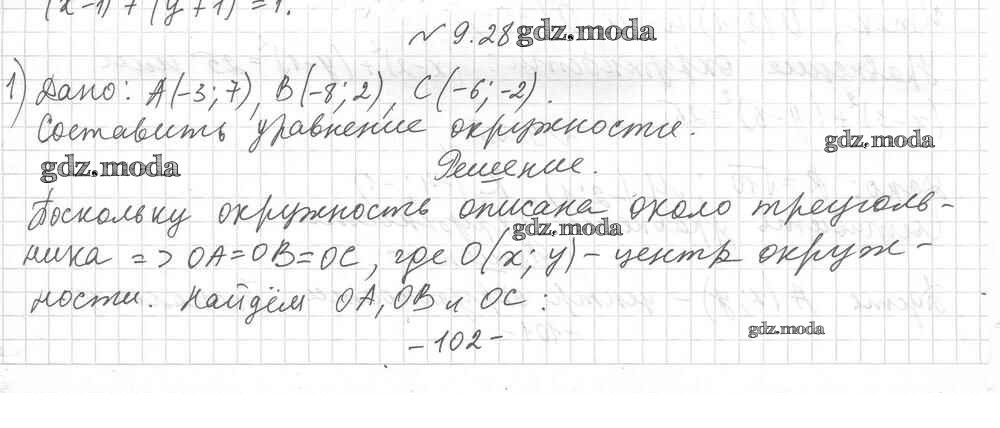 (x-1)² + (y+1)² = 1.
№ 9.28 gdz.moda
1) Дано: A(-3; 7), B(-8; 2), C(-6; -2).
Составить уравнение окружности.
gdz.moda
gdz.moda
Решение.
Поскольку окружность описана около треуголь-
gdz.moda
ника => OA=OB=OC, где O(x; y) - центр окруж-
ности. Найдём OA, OB и OC :
gdz.moda
- 102 -